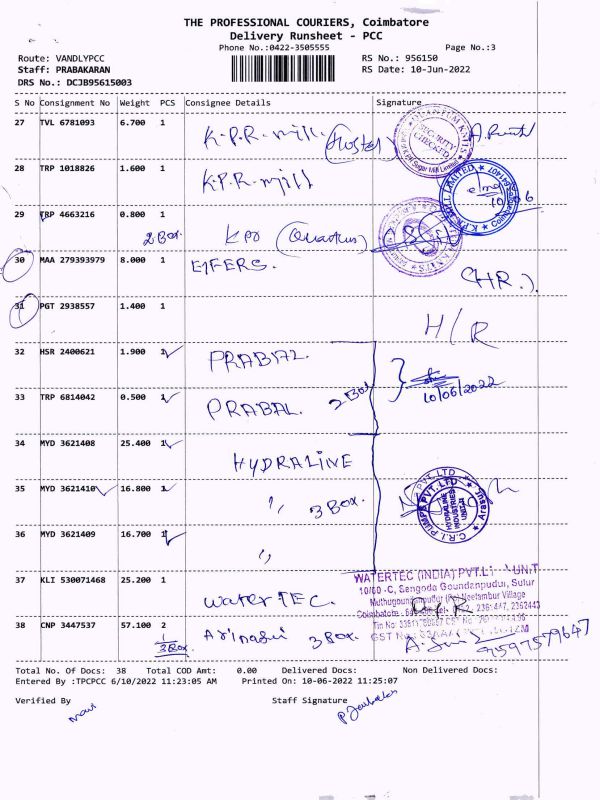 THE PROFESSIONAL COURIERS, Coimbatore
Delivery Runsheet - PCC
Phone No.:0422-3505555 Page No.:3
Route: VANDLYPCC RS No.: 956150
Staff: PRABAKARAN RS Date: 10-Jun-2022
DRS No.: DCJB95615003
S No Consignment No Weight PCS Consignee Details Signature
27 TVL 6781093 6.700 1 K.P.R. mill. (Hostel)
SECURITY CHECKED
28 TRP 1018826 1.600 1 K.P.R. mill
29 TRP 4663216 0.800 1 KPR
2 Box.
30 MAA 279393979 8.000 1 EIFERS. (HR.).
31 PGT 2938557 1.400 1 H/R
32 HSR 2400621 1.900 1 PRABAL.
33 TRP 6814042 0.500 1 PRABAL. 2 Box 10/06/2022
34 MYD 3621408 25.400 1 HYDRALINE
35 MYD 3621410 16.800 1 ,, 3 Box.
C.R.I. PUMPS PVT.LTD
HYDRALINE INDUSTRIES
36 MYD 3621409 16.700 1 ,,
37 KLI 530071468 25.200 1 WaterTEC.
WATERTEC (INDIA) PVT.LT UNIT
10/60 -C, Sengoda Goundanpudur, Sulur
38 CNP 3447537 57.100 2 3 Box.
3 Box. 9597579647
Total No. Of Docs: 38 Total COD Amt: 0.00 Delivered Docs: Non Delivered Docs:
Entered By :TPCPCC 6/10/2022 11:23:05 AM Printed On: 10-06-2022 11:25:07
Verified By Staff Signature